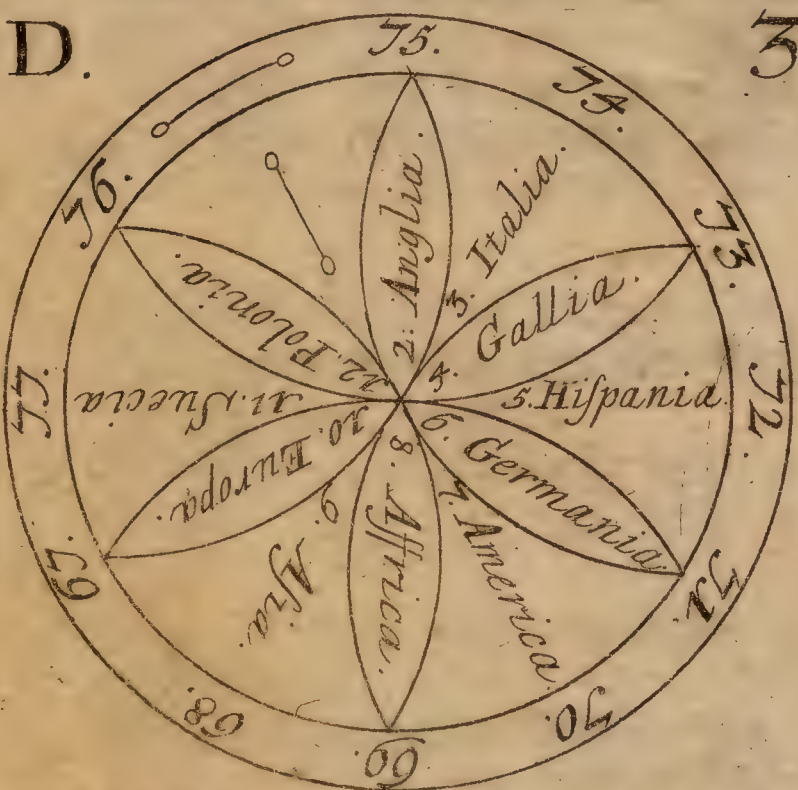 D.
3
75.
74.
73.
72.
71.
70.
69.
68.
67.
77.
76.
2: Anglia.
3. Italia.
4. Gallia.
5. Hiſpania.
6. Germania
7. America.
8. Affrica.
9. Aſia.
10. Europa.
11. Suecia
12. Polonia.